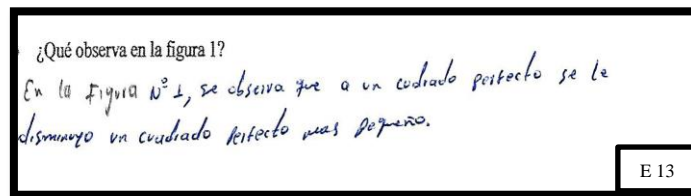 ¿Qué observa en la figura 1?
En la Figura N° 1, se observa que a un cudrado perfecto se le
disminuyo un cuadrado perfecto mas pequeño.
E 13